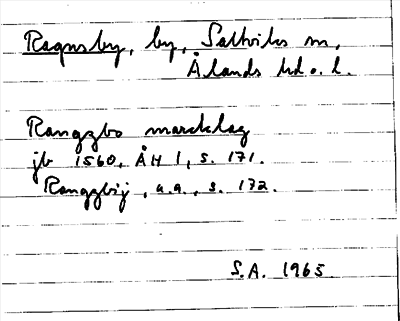 Ragnsby, by, Saltviks sn,
Ålands hd o. l.
Ranggbo marcklag
jb 1560, ÅH 1, s. 171.
Ranggbij, a.a., s. 172.
S.A. 1965